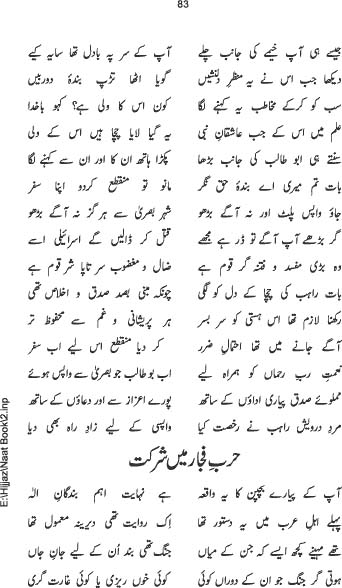 83
جیسے ہی آپ خیمے کی جانب چلے آپ کے سر پہ بادل تھا سایہ کیے
دیکھا جب اس نے یہ منظرِ دلنشیں گویا اٹھا تڑپ بندۂ دوربیں
سب کو کرکے مخاطب یہ کہنے لگا کون اس کا ولی ہے؟ کہو باخدا
علم میں اس کے جب عاشقانِ نبی یہ گیا لایا چچا ہیں اس کے ولی
سنتے ہی ابو طالب کی جانب بڑھا پکڑا ہاتھ ان کا اور ان سے کہنے لگا
بات تم میری اے بندۂ حق نگر مانو تو منقطع کردو اپنا سفر
جاؤ واپس پلٹ اور نہ آگے بڑھو شہر بصریٰ سے ہرگز نہ آگے بڑھو
گر بڑھے آپ آگے تو ڈر ہے مجھے قتل کر ڈالیں گے اسرائیلی اسے
وہ بڑی مفسد و فتنہ گر قوم ہے ضال و مغضوب سر تاپا شر قوم ہے
بات راہب کی چچا کے دل کو لگی چونکہ مبنی بصد صدق و اخلاص تھی
رکھنا لازم تھا اس ہستی کو سر بسر ہر پریشانی و غم سے محفوظ تر
آگے جانے میں تھا احتمالِ ضرر کر دیا منقطع اس لیے اب سفر
نعمتِ ربِ رحماں کو ہمراہ لیے اب بو طالب جو بصریٰ سے واپس ہوئے
مملوئے صدق پیاری اداؤں کے ساتھ پورے اعزاز سے اور دعاؤں کے ساتھ
مردِ درویش راہب نے رخصت کیا واپسی کے لیے زادِ راہ بھی دیا
حربِ فجار میں شرکت
آپ کے پیارے بچپن کا یہ واقعہ ہے نہایت اہم بندگانِ الٰہ
پہلے اہلِ عرب میں یہ دستور تھا اِک روایت تھی دیرینہ معمول تھا
تھے مہینے کچھ ایسے کہ جن کے میاں جنگ تھی بند اُن کے لیے جانِ جاں
ہوتی گر جنگ جو ان کے دوران کوئی کوئی خوں ریزی یا کوئی غارت گری
E:\Hijjaz\Naat Book\2.inp